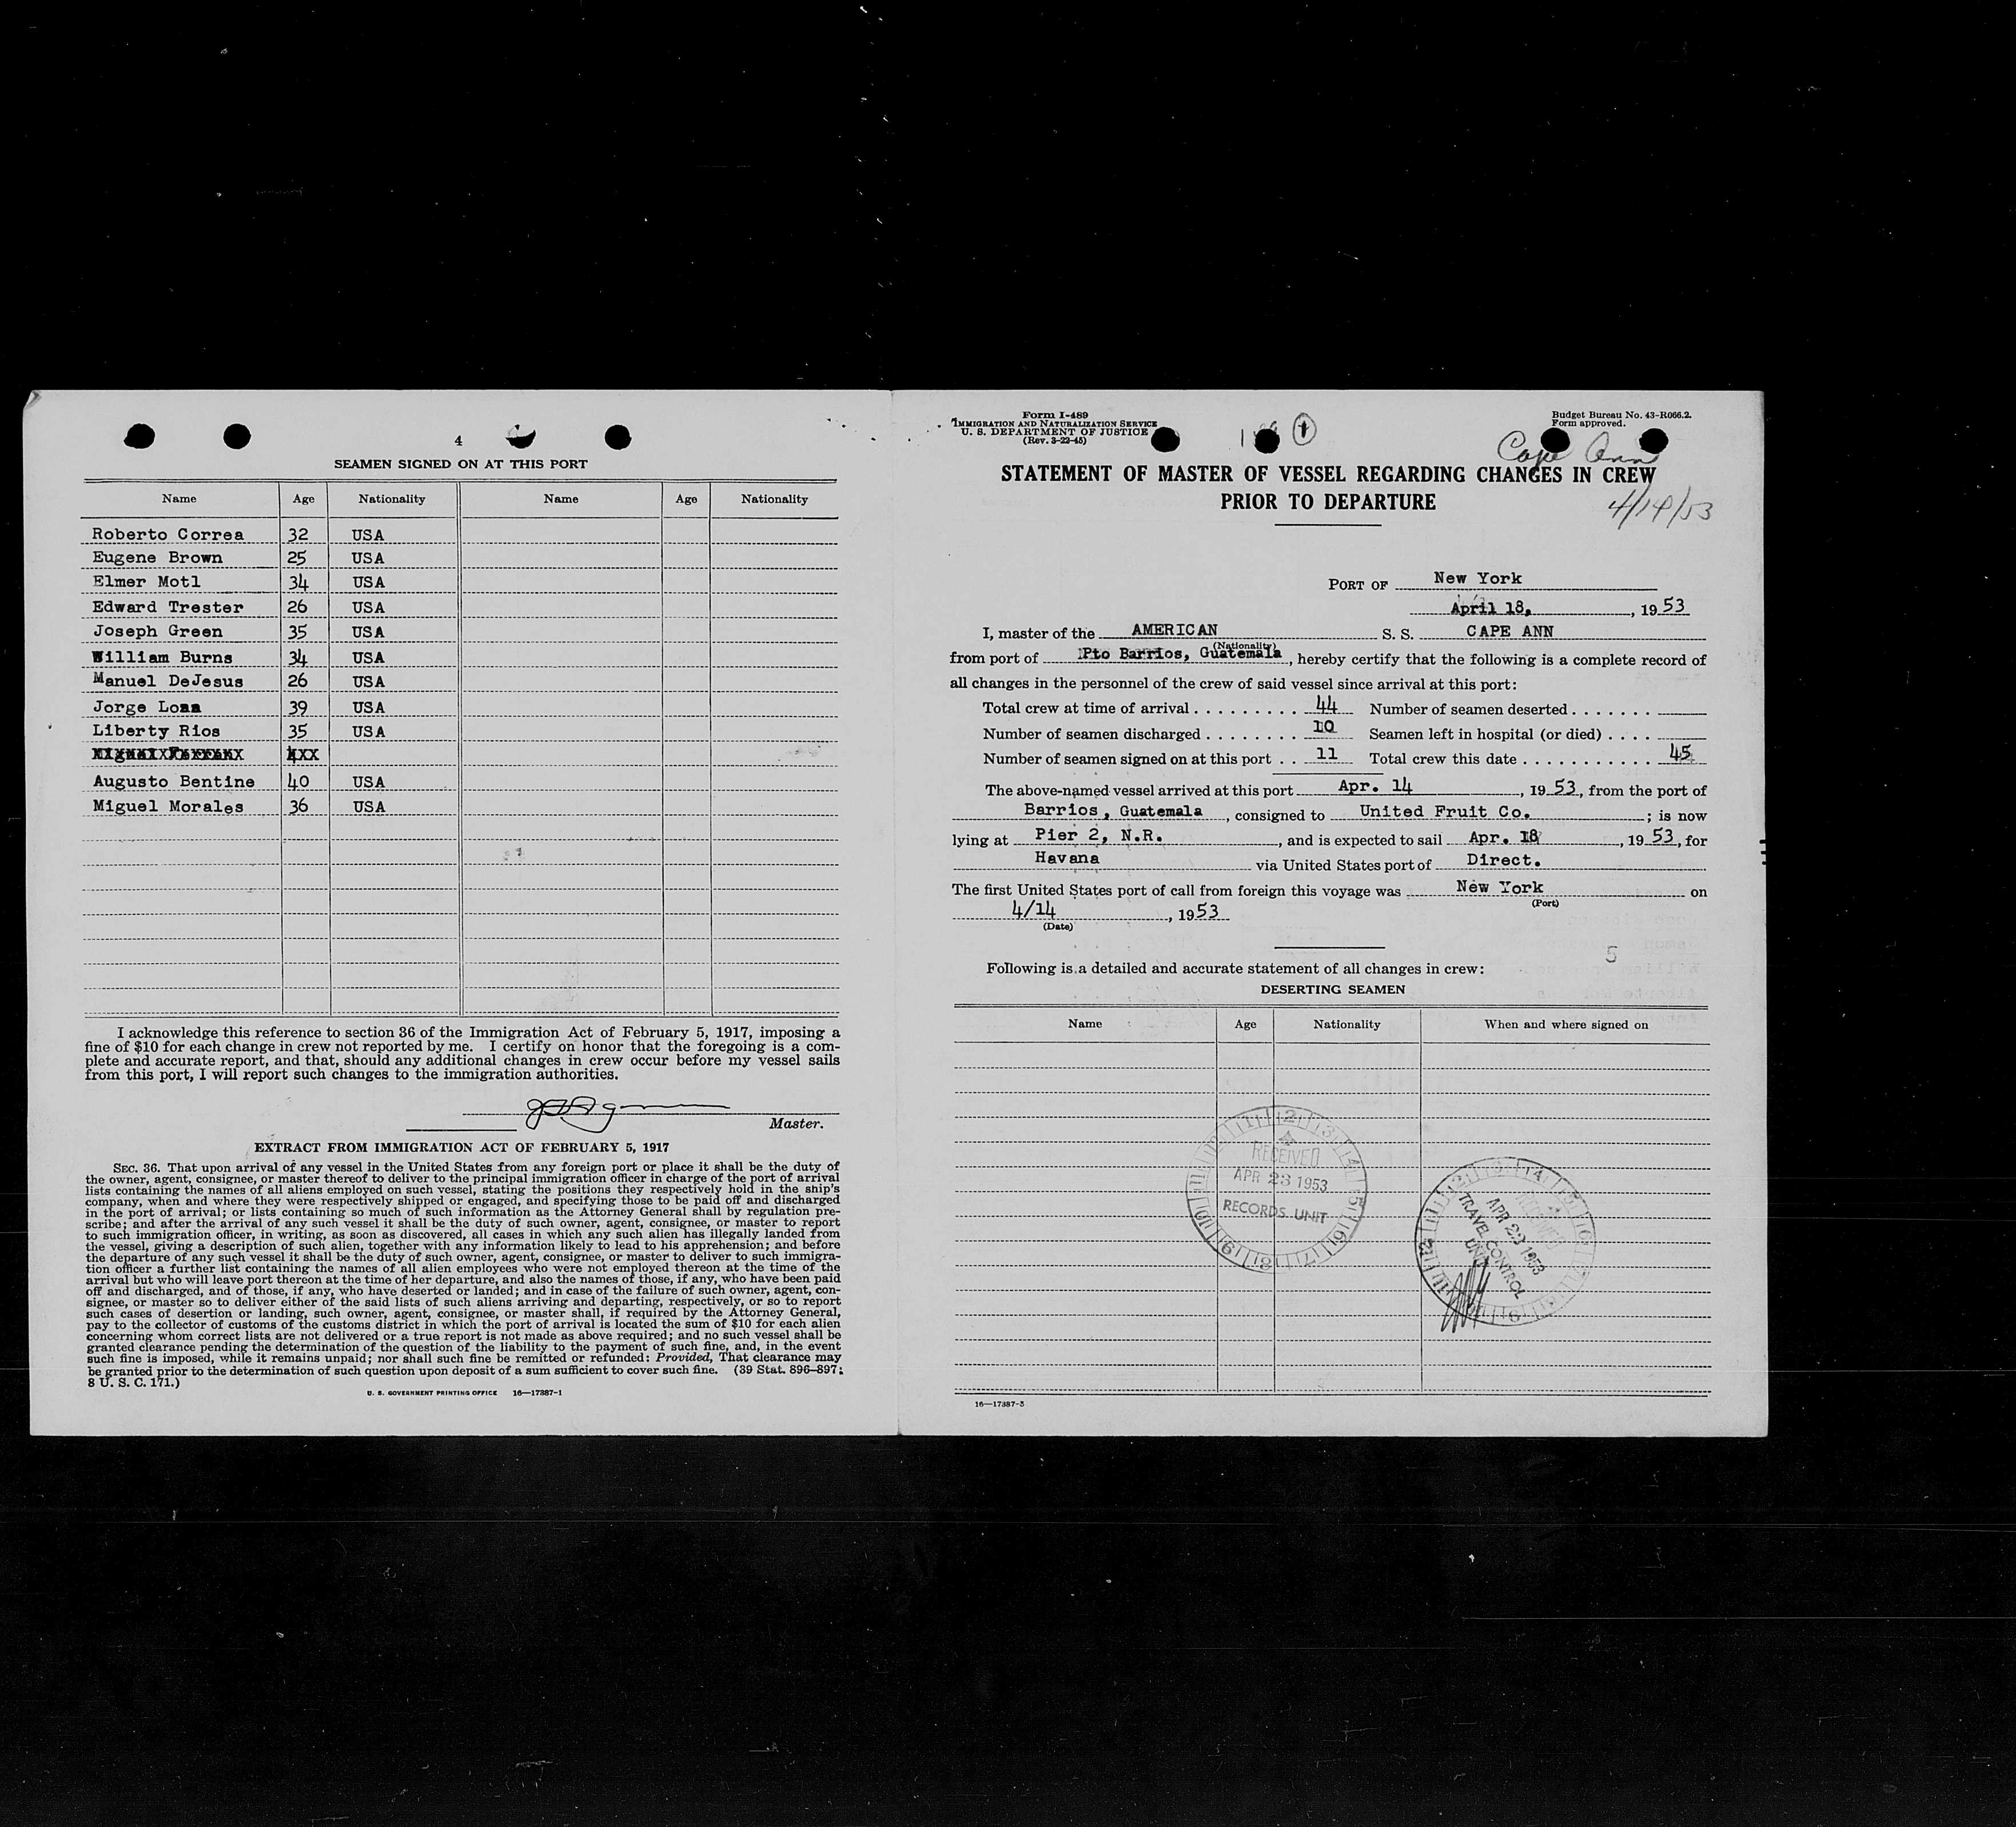 4
SEAMEN SIGNED ON AT THIS PORT
Name Age Nationality Name Age Nationality
Roberto Correa 32 USA
Eugene Brown 25 USA
Elmer Motl 34 USA
Edward Trester 26 USA
Joseph Green 35 USA
William Burns 34 USA
Manuel DeJesus 26 USA
Jorge 39 USA
Liberty Rios 35 USA
Augusto Bentine 40 USA
Miguel Morales 36 USA
I acknowledge this reference to section 36 of the Immigration Act of February 5, 1917, imposing a
fine of $10 for each change in crew not reported by me. I certify on honor that the foregoing is a com-
plete and accurate report, and that, should any additional changes in crew occur before my vessel sails
from this port, I will report such changes to the immigration authorities.
Master.
EXTRACT FROM IMMIGRATION ACT OF FEBRUARY 5, 1917
SEC. 36. That upon arrival of any vessel in the United States from any foreign port or place it shall be the duty of
the owner, agent, consignee, or master thereof to deliver to the principal immigration officer in charge of the port of arrival
lists containing the names of all aliens employed on such vessel, stating the positions they respectively hold in the ship's
company, when and where they were respectively shipped or engaged, and specifying those to be paid off and discharged
in the port of arrival; or lists containing so much of such information as the Attorney General shall by regulation pre-
scribe; and after the arrival of any such vessel it shall be the duty of such owner, agent, consignee, or master to report
to such immigration officer, in writing, as soon as discovered, all cases in which any such alien has illegally landed from
the vessel, giving a description of such alien, together with any information likely to lead to his apprehension; and before
the departure of any such vessel it shall be the duty of such owner, agent, consignee, or master to deliver to such immigra-
tion officer a further list containing the names of all alien employees who were not employed thereon at the time of the
arrival but who will leave port thereon at the time of her departure, and also the names of those, if any, who have been paid
off and discharged, and of those, if any, who have deserted or landed; and in case of the failure of such owner, agent, con-
signee, or master so to deliver either of the said lists of such aliens arriving and departing, respectively, or so to report
such cases of desertion or landing, such owner, agent, consignee, or master shall, if required by the Attorney General,
pay to the collector of customs of the customs district in which the port of arrival is located the sum of $10 for each alien
concerning whom correct lists are not delivered or a true report is not made as above required; and no such vessel shall be
granted clearance pending the determination of the question of the liability to the payment of such fine, and, in the event
such fine is imposed, while it remains unpaid; nor shall such fine be remitted or refunded: Provided, That clearance may
be granted prior to the determination of such question upon deposit of a sum sufficient to cover such fine. (39 Stat. 896–897;
8 U. S. C. 171.)
U. S. GOVERNMENT PRINTING OFFICE 16—17387-1
Form I-489
IMMIGRATION AND NATURALIZATION SERVICE
U. S. DEPARTMENT OF JUSTICE
(Rev. 3-22-45)
Budget Bureau No. 43-R066.2.
Form approved.
Cape Ann
STATEMENT OF MASTER OF VESSEL REGARDING CHANGES IN CREW
PRIOR TO DEPARTURE
4/14/53
PORT OF New York
April 18, , 1953
I, master of the AMERICAN S. S. CAPE ANN
(Nationality)
from port of Pto Barrios, Guatemala, hereby certify that the following is a complete record of
all changes in the personnel of the crew of said vessel since arrival at this port:
Total crew at time of arrival . . . . . . . . . 44 Number of seamen deserted . . . . . . .
Number of seamen discharged . . . . . . . . 10 Seamen left in hospital (or died) . . . .
Number of seamen signed on at this port . . 11 Total crew this date . . . . . . . . . . . 45
The above-named vessel arrived at this port Apr. 14 , 19 53, from the port of
Barrios, Guatemala , consigned to United Fruit Co. ; is now
lying at Pier 2, N.R. , and is expected to sail Apr. 18 , 19 53, for
Havana via United States port of Direct.
The first United States port of call from foreign this voyage was New York on
(Port)
4/14 , 19 53
(Date)
5
Following is a detailed and accurate statement of all changes in crew:
DESERTING SEAMEN
Name Age Nationality When and where signed on
RECEIVED
APR 23 1953
RECORDS UNIT
RECEIVED
APR 23 1953
TRAVEL CONTROL
UNIT
16—17387-3